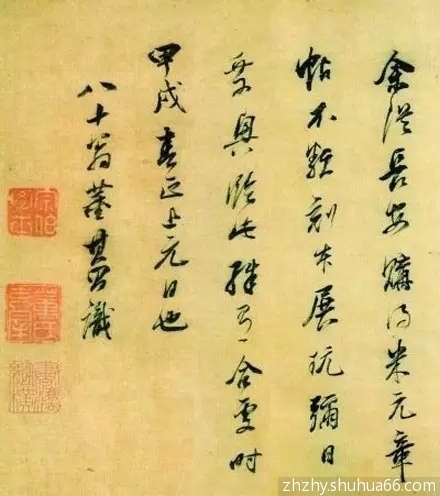 余從長安購得米元章
帖不類刻本展玩彌日
案與臨此殊有合處時
甲戌春正上元日也
八十翁董其昌識
zhzhy.shuhua66.com